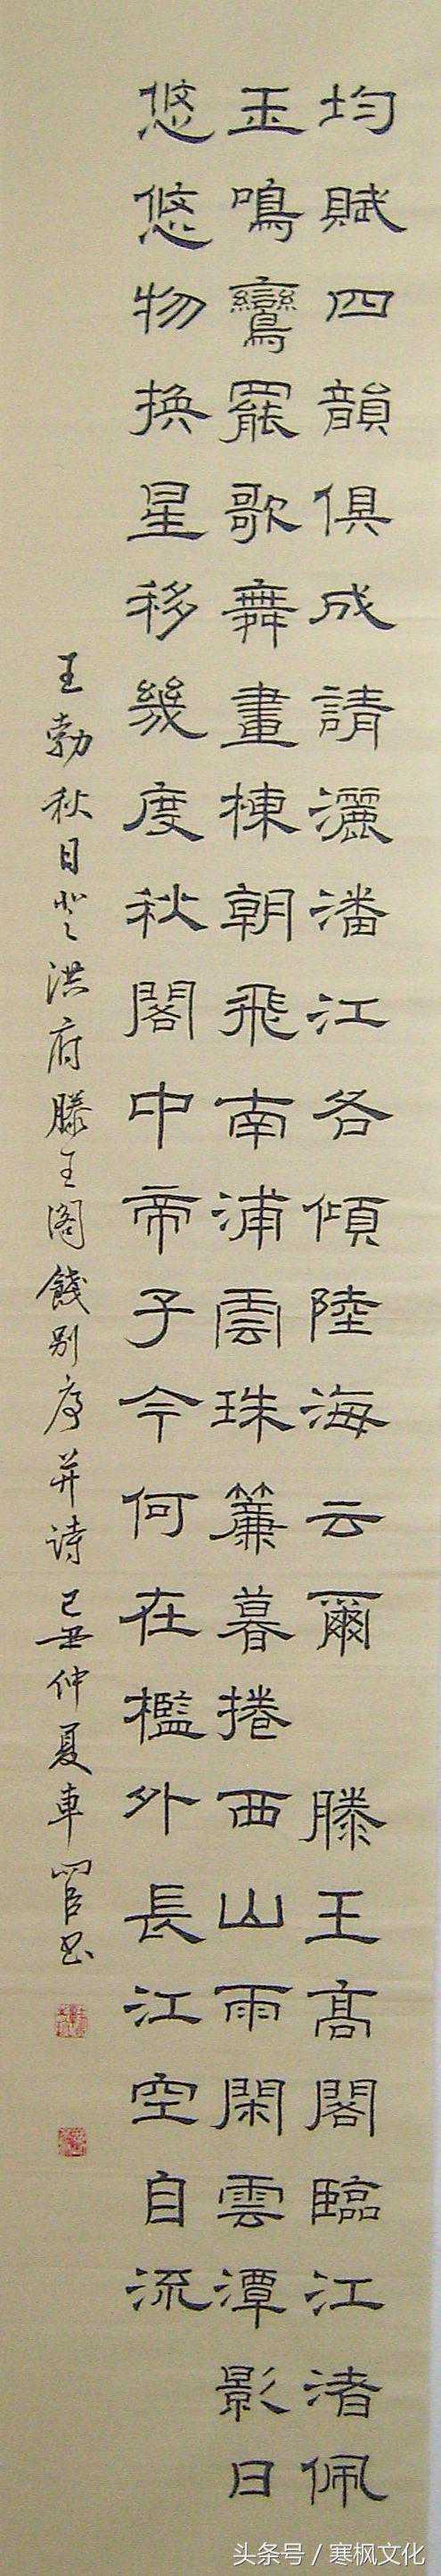 均賦四韻俱成請灑潘江各傾陸海云爾 滕王高閣臨江渚佩
玉鳴鸞罷歌舞畫棟朝飛南浦雲珠簾暮捲西山雨閑雲潭影日
悠悠物換星移幾度秋閣中帝子今何在檻外長江空自流
王勃秋日登洪府滕王阁餞别序并诗 己丑仲夏車
头条号 / 寒枫文化